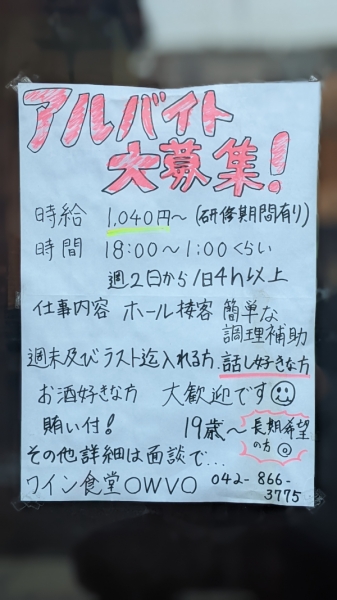 アルバイト
大募集!
時給 1,040円〜(研修期間有り)
時間 18:00〜1:00くらい
週2日から/日4h以上
仕事内容 ホール接客 簡単な
調理補助
週末及びラスト迄入れる方、話し好きな方
お酒好きな方 大歓迎です
賄い付! 19歳〜 長期希望
の方◎
その他詳細は面談で...
ワイン食堂OWVO 042-866-
3775